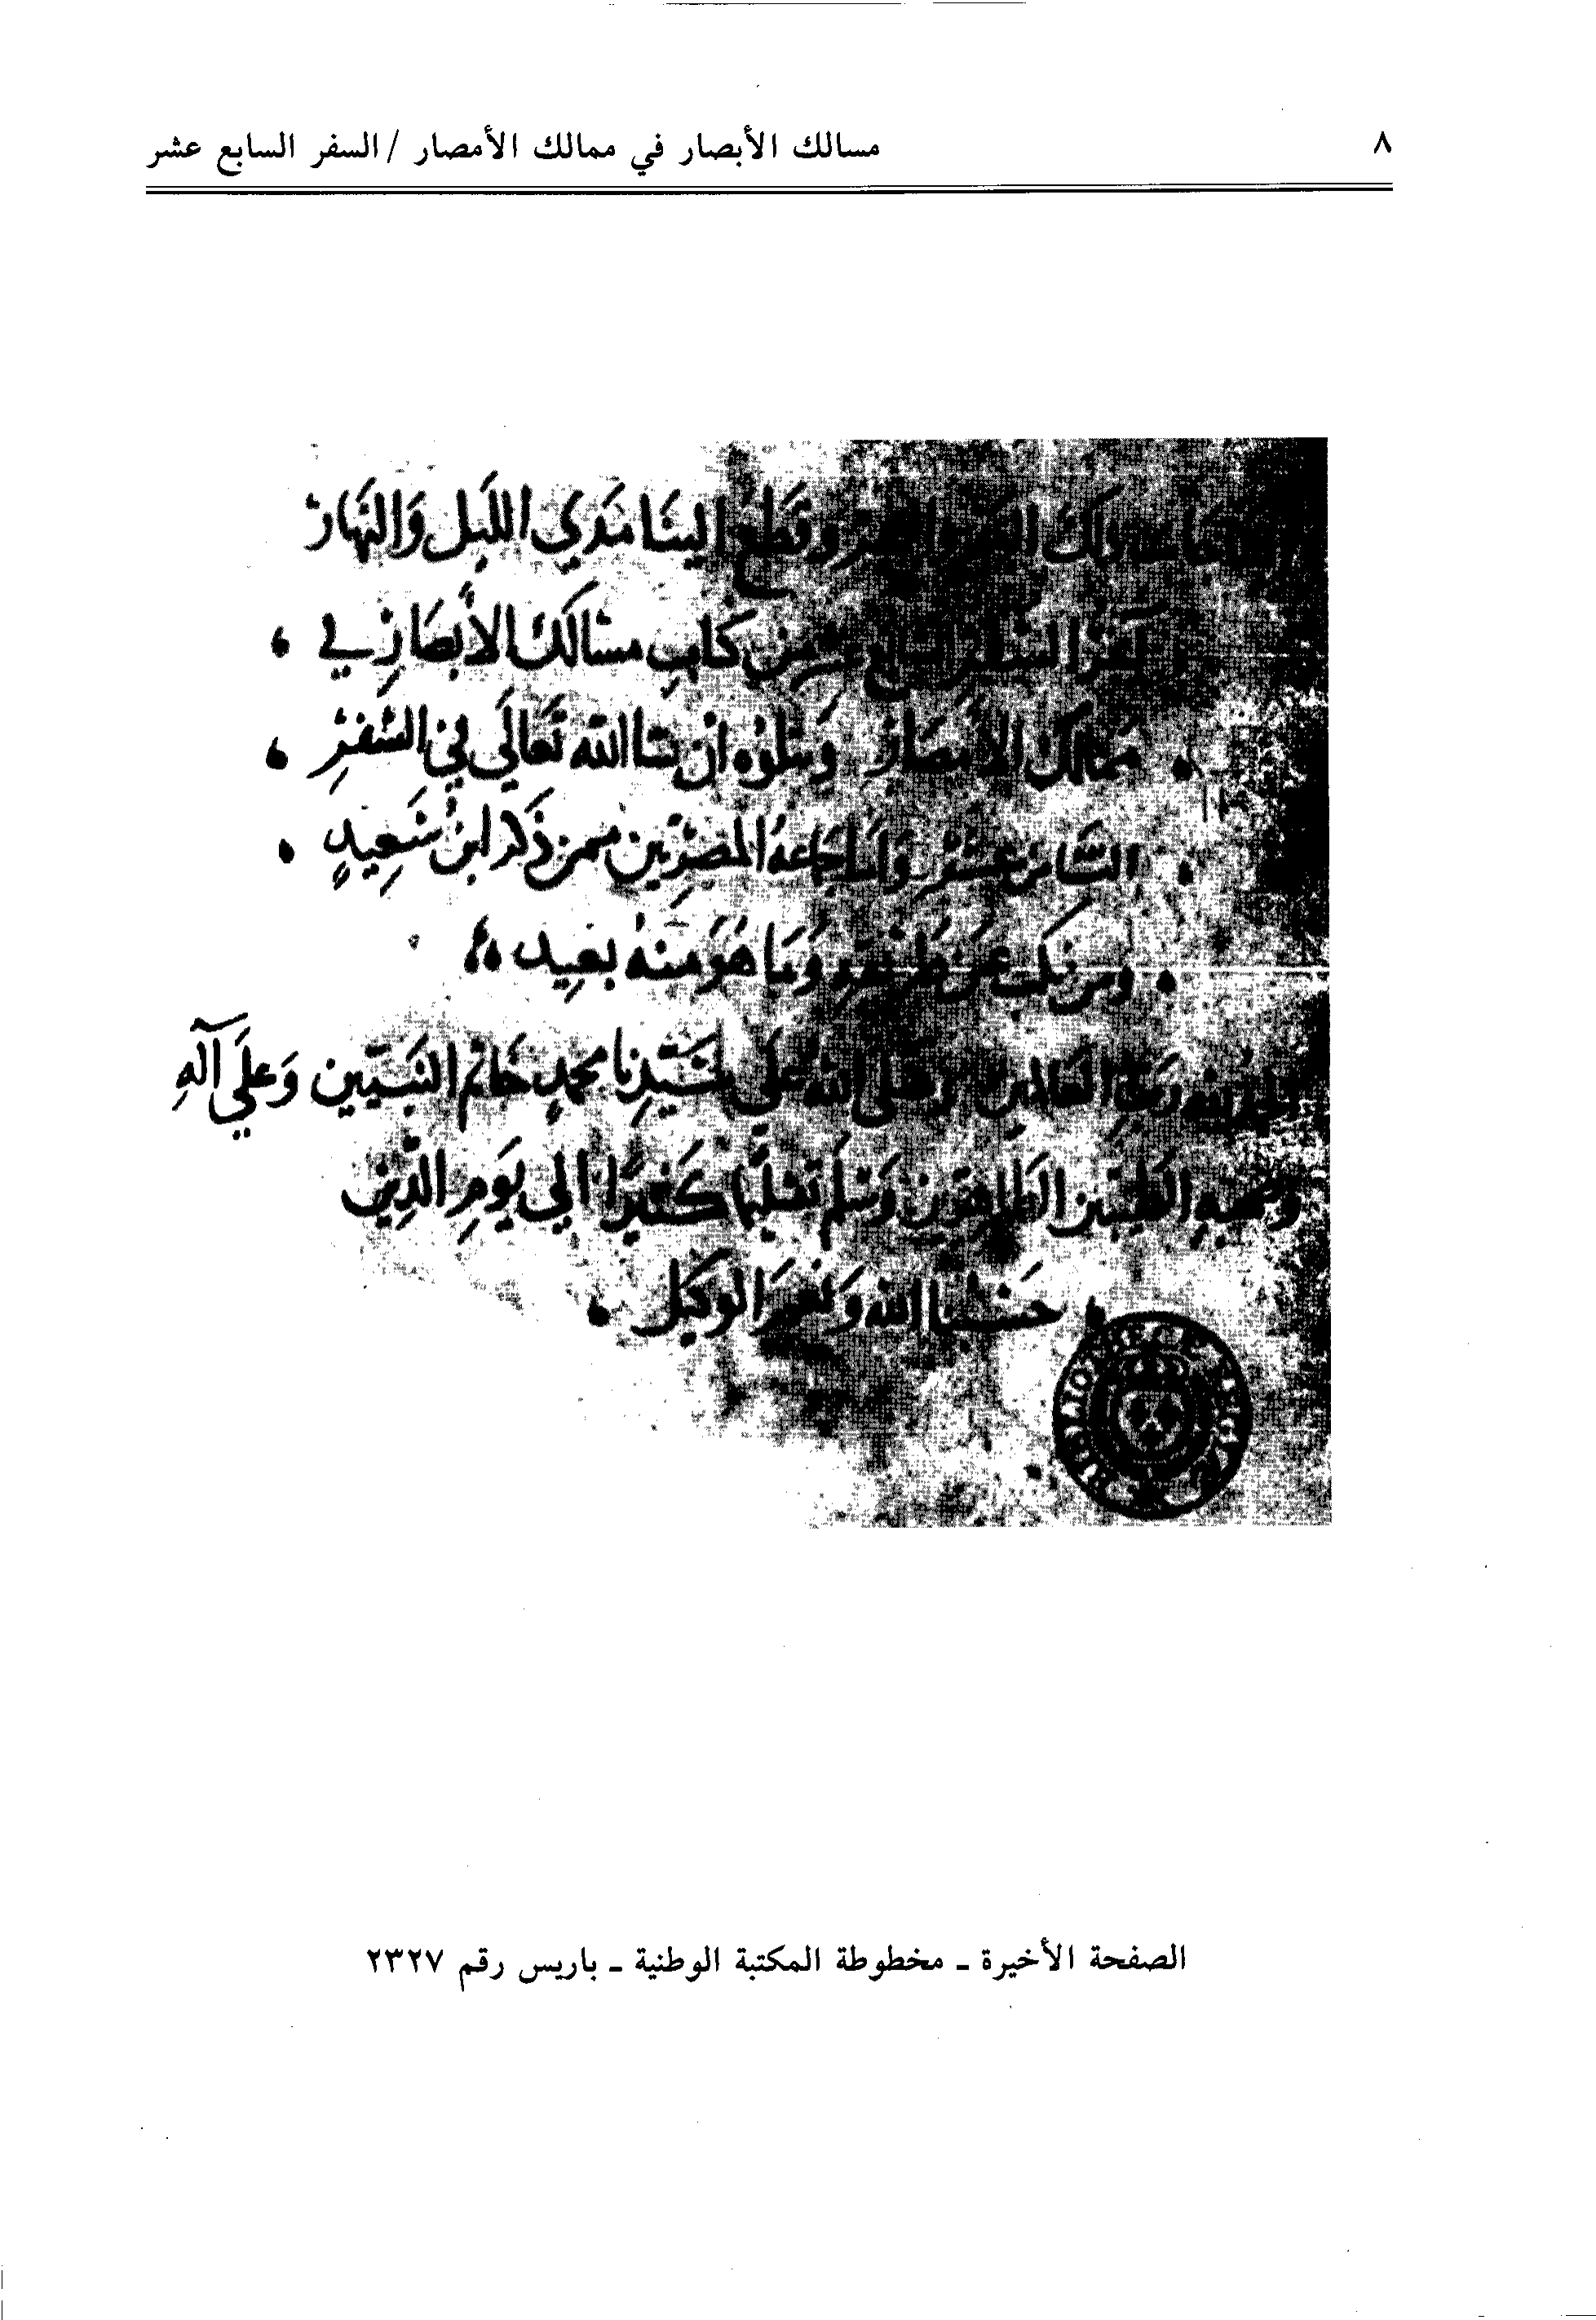 ٨
مسالك الأبصار في ممالك الأمصار / السفر السابع عشر
وقطع الينا مَدَي الليل وَالنهار
آخر السفر السابع عشر من كتاب مسَالك الأبصَارِ في
ممَالك الأمصَار وَيتلوُه ان شا الله تعَالَي في السَّفرِ
الثامن عشر وَامّا جَمَاعة المصرِيّين ممن ذكر ابن سَعِيدٍ
وَمَا هَوَ منهُ بعيد
الحمد لله رَب العَالمين وصَلى الله عَلَي سَيّدِنا محمدٍ خَاتم النبيّين وَعلَي آلهِ
وصَحبهِ الطيّبين الطاهِرين وَسَلم تسْليمًا كَثيرًا الي يَوم الدِّين
حَسْبنا الله وَنعمَ الوكيل
BIBLIOTHECÆ REGIÆ
الصفحة الأخيرة - مخطوطة المكتبة الوطنية - باريس رقم ٢٣٢٧